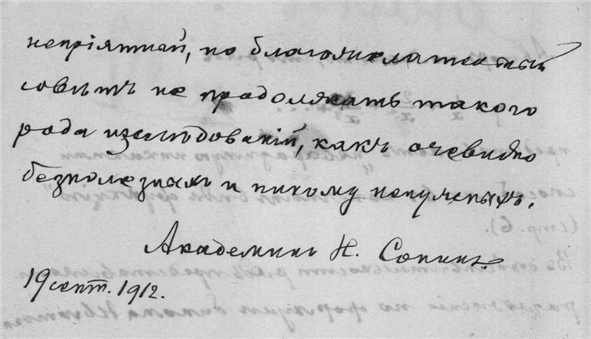 непріятный, но благожелательный
совѣтъ не продолжать такого
рода изслѣдованій, какъ очевидно
безполезныхъ и никому ненужныхъ.
Академикъ Н. Сонинъ.
19 сент. 1912.
(стр. 6).